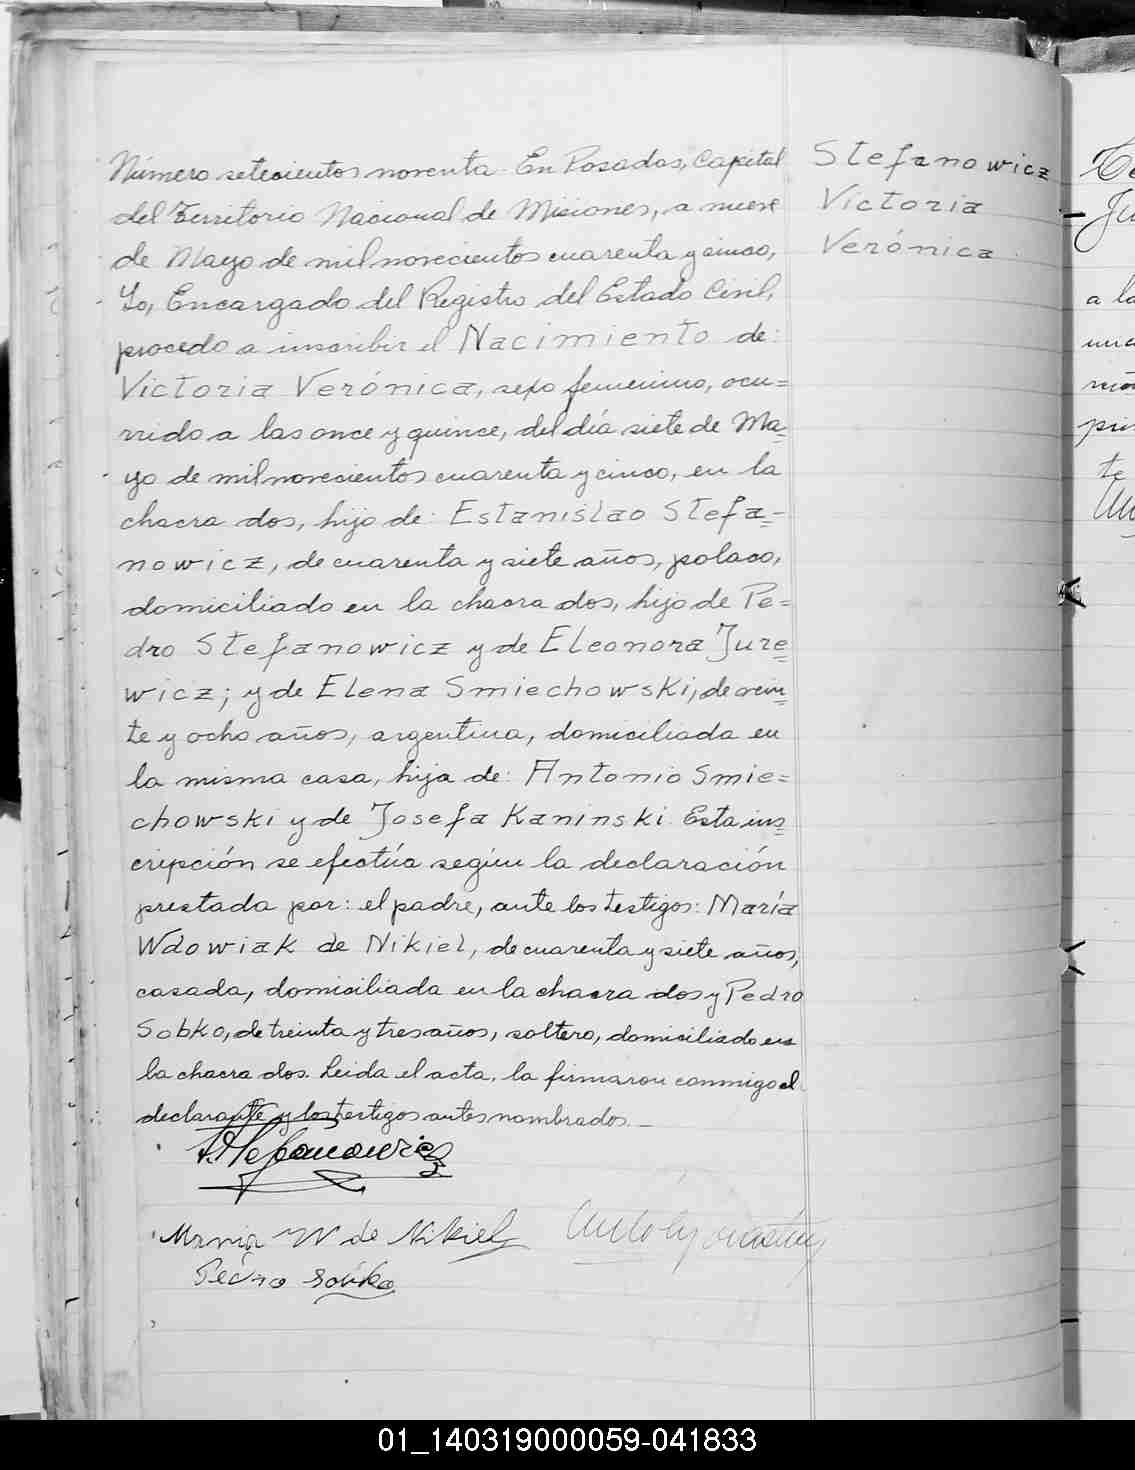 Número setecientos noventa. En Posadas, Capital
del Territorio Nacional de Misiones, a nueve
de Mayo de mil novecientos cuarenta y cinco,
Yo, Encargado del Registro del Estado Civil,
procedo a inscribir el Nacimiento de:
Victoria Verónica, sexo femenino, ocu=
rrido a las once y quince, del día siete de Ma=
yo de mil novecientos cuarenta y cinco, en la
chacra dos, hijo de: Estanislao Stefa=
nowicz, de cuarenta y siete años, polaco,
domiciliado en la chacra dos, hijo de Pe=
dro Stefanowicz y de Eleonora Jure=
wicz; y de Elena Smiechowski, de vein=
te y ocho años, argentina, domiciliada en
la misma casa, hija de: Antonio Smie=
chowski y de Josefa Kaninski. Esta ins=
cripción se efectúa según la declaración
prestada por: el padre, ante los testigos: María
Wdowiak de Nikiel, de cuarenta y siete años,
casada, domiciliada en la chacra dos y Pedro
Sobko, de treinta y tres años, soltero, domiciliado en
la chacra dos. Leida el acta, la firmaron conmigo el
declarante y los testigos antes nombrados.
Stefanowicz
Maria W de Nikiel
Pedro Sobko
Stefanowicz
Victoria
Verónica
a la
te
01_140319000059-041833